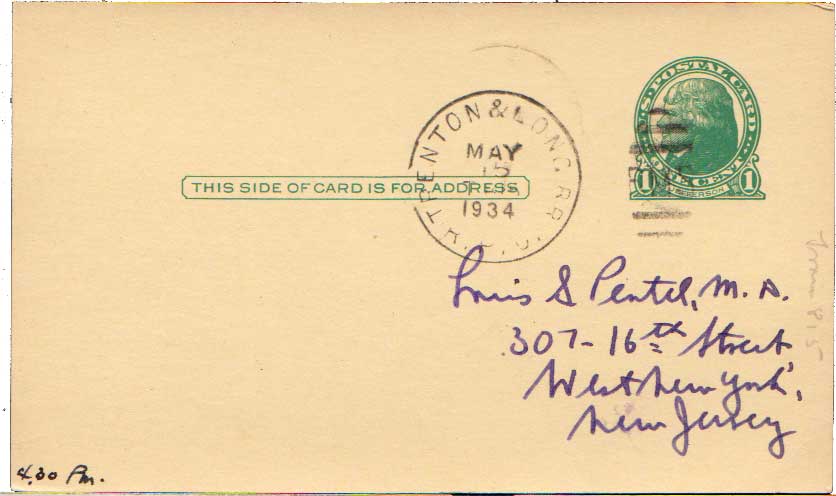 U.S. POSTAL CARD
ONE CENT
1 JEFFERSON 1
TRENTON & LONG. BR.
MAY
15
1934
R.P.O.
THIS SIDE OF CARD IS FOR ADDRESS
Louis S Pentel, M.D.
307-16th Street,
West New York,
New Jersey
train 815
4.30 Pm.